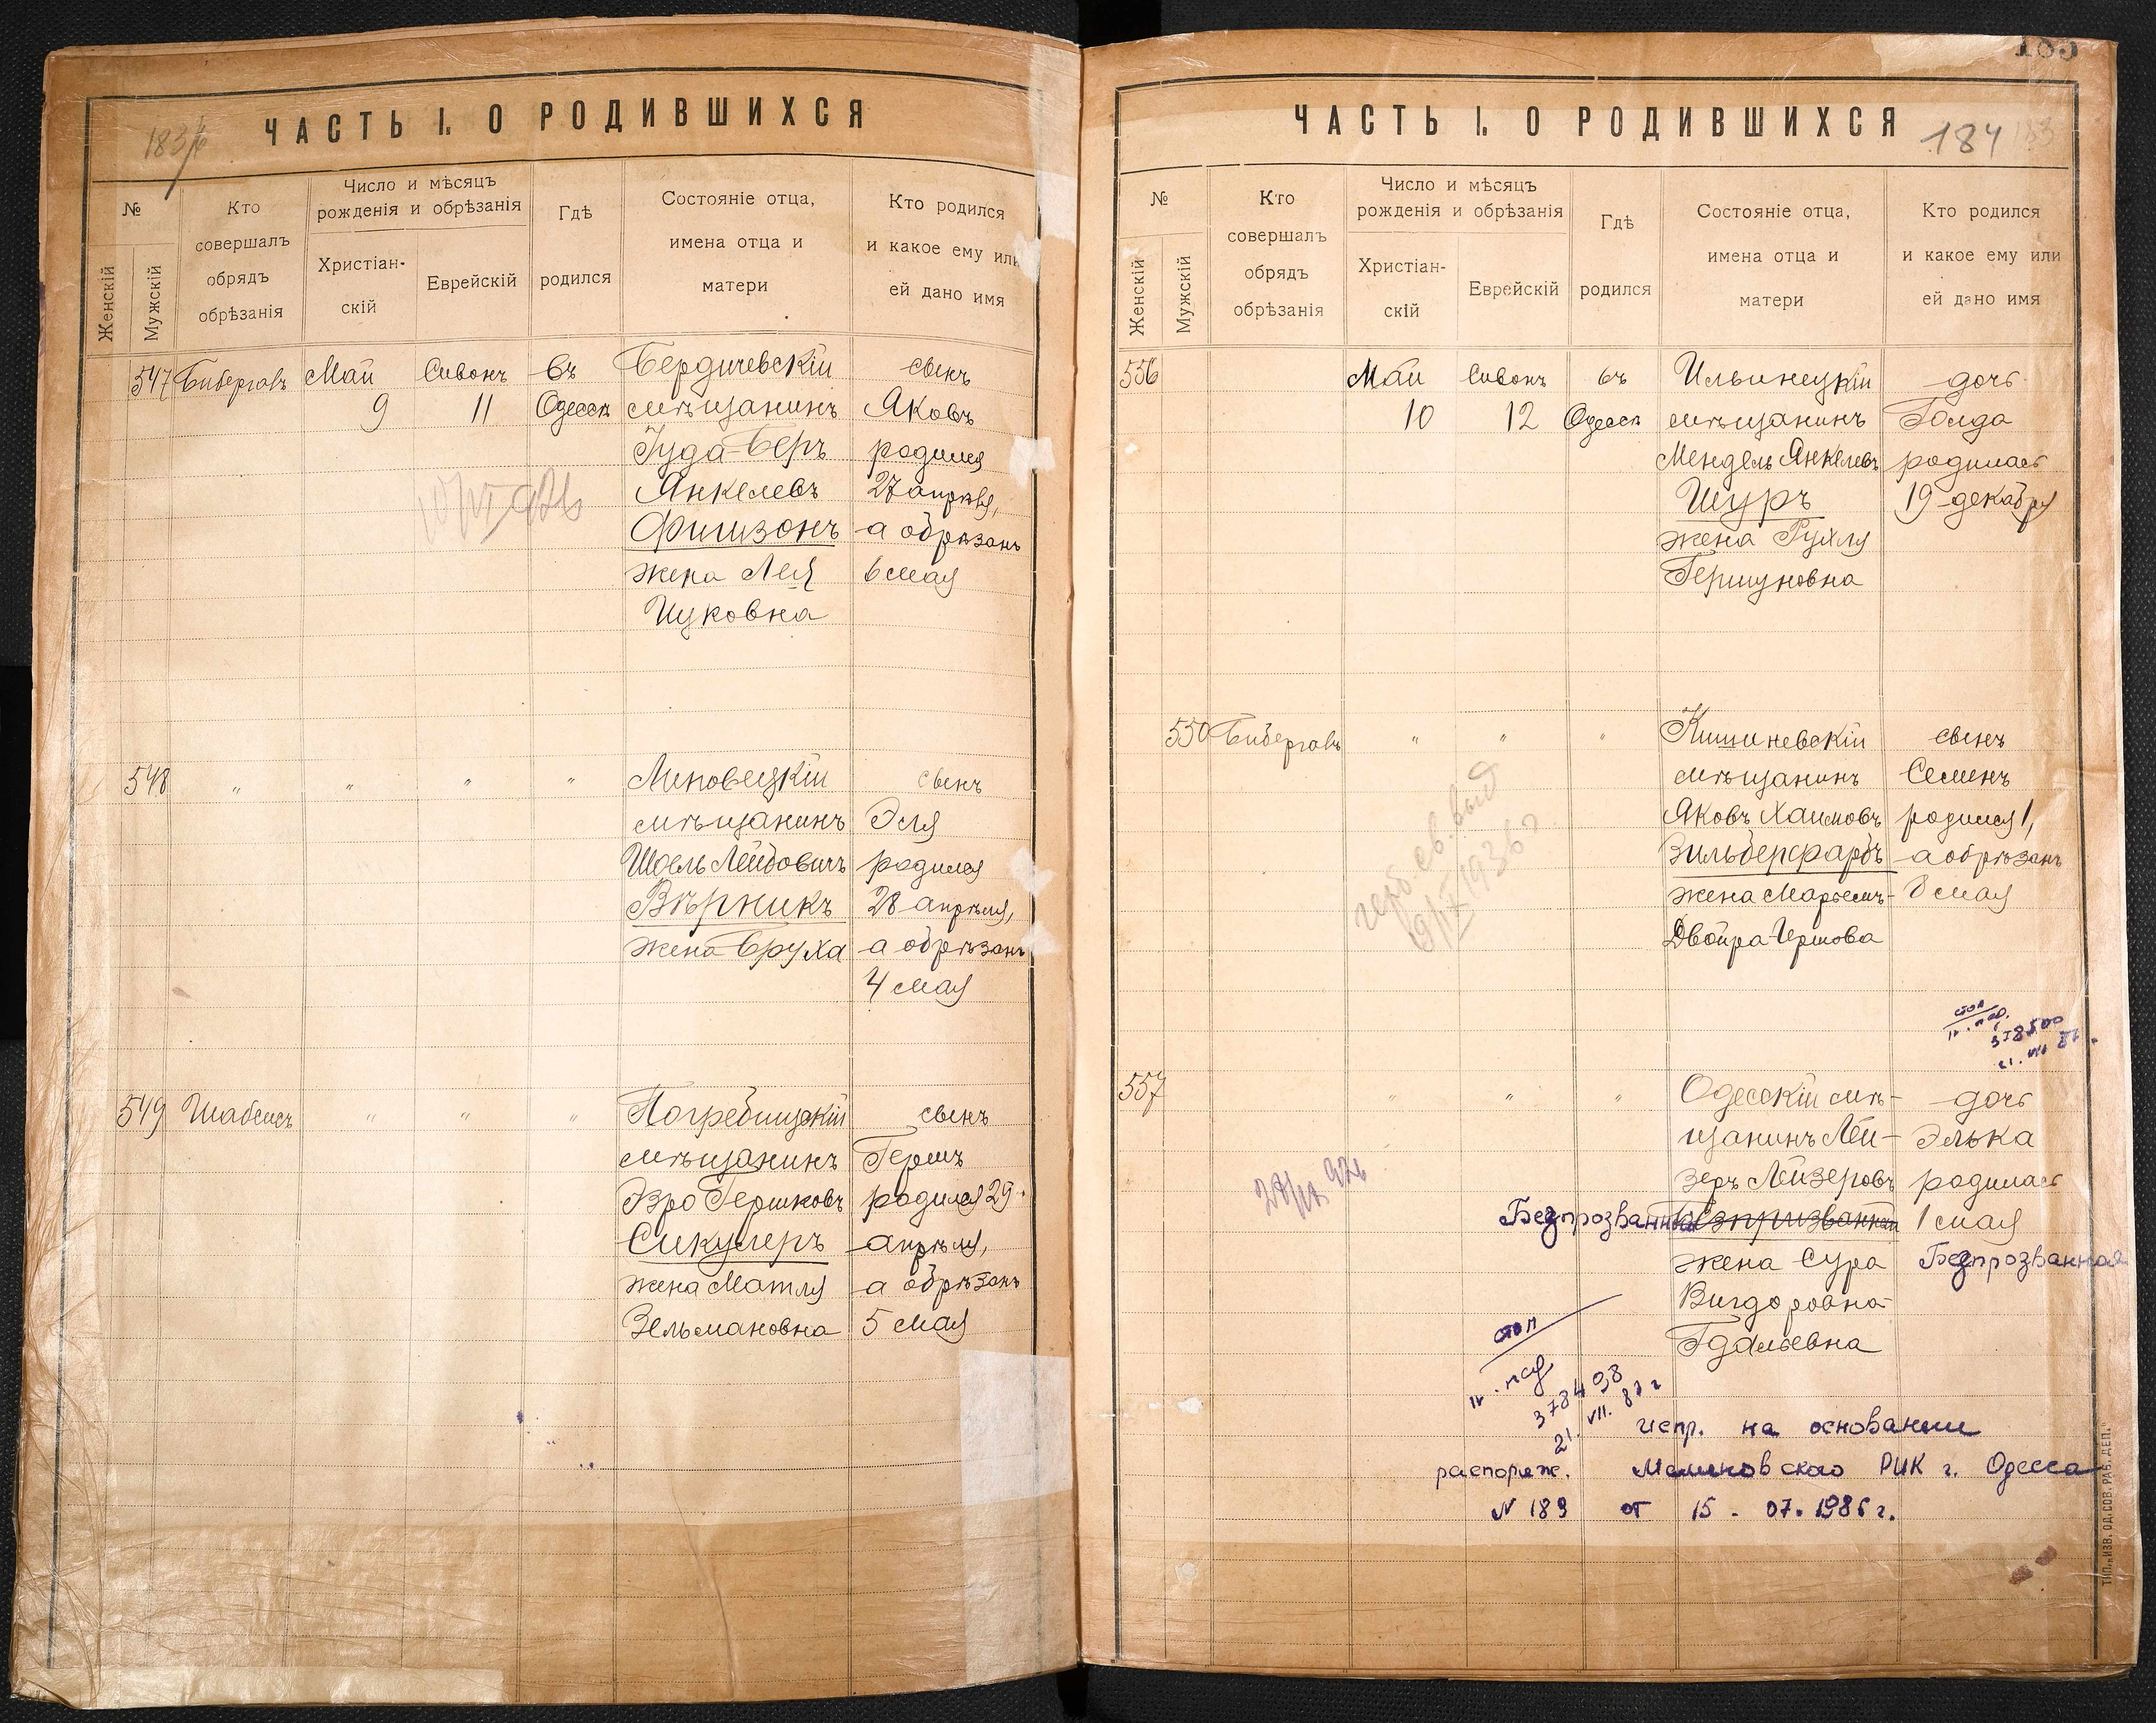 183
ЧАСТЬ I. О РОДИВШИХСЯ
№
Женскій
Мужскій
Кто совершалъ обрядъ обрѣзанія
Число и мѣсяцъ рожденія и обрѣзанія
Христіан-скій
Еврейскій
Гдѣ родился
Состояніе отца, имена отца и матери
Кто родился и какое ему или ей дано имя
547 Бибергалъ Май Сивонъ въ Бердичевскій сынъ
9 11 Одессѣ мѣщанинъ Яковъ
Іуда-Беръ родился
Янкелевъ 27 апрѣля,
Фишзонъ а обрѣзанъ
жена Лея 6 мая
Ицковна
548 " " " " Липовецкій сынъ
мѣщанинъ Эля
Шоель Лейбовичъ родился
Вѣрникъ 28 апрѣля,
жена Бруха а обрѣзанъ
4 мая
549 Шабсисъ " " " Погребищскій сынъ
мѣщанинъ Гершъ
Эзро Гершковъ родился 29
Сикулеръ апрѣля,
жена Матля а обрѣзанъ
Зельмановна 5 мая
185
ЧАСТЬ I. О РОДИВШИХСЯ
184
№
Женскій
Мужскій
Кто совершалъ обрядъ обрѣзанія
Число и мѣсяцъ рожденія и обрѣзанія
Христіан-скій
Еврейскій
Гдѣ родился
Состояніе отца, имена отца и матери
Кто родился и какое ему или ей дано имя
556 Май Сивонъ въ Ильинецкій дочь
10 12 Одессѣ мѣщанинъ Голда
Мендель Янкелевъ родилась
Шуръ 19 декабря
жена Рухля
Гершуновна
550 Бибергалъ " " " Кишиневскій сынъ
мѣщанинъ Семенъ
Яковъ Хаимовъ родился 1,
Зильберфарбъ а обрѣзанъ
жена Марьемъ- 8 мая
Двойра Гершова
стоп
378500
557 " " " Одесскій мѣ- дочь
щанинъ Лей- Элька
зеръ Лейзеровъ родилась
Безпрозванный 1 мая
жена Сура Безпрозванная
Вигдоровна-
Гдальевна
стоп
378408
21. VII. 87 г
испр. на основании
распоряж. Малиновского РИК г. Одесса
N 189 от 15 - 07. 1986 г.
ТИП. „ИЗВ. ОД. СОВ. РАБ. ДЕП."